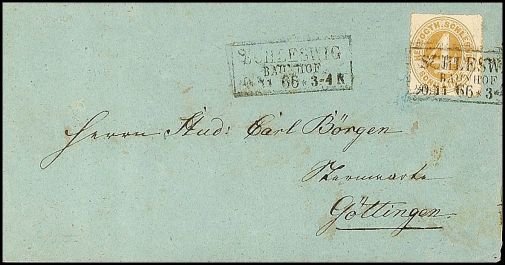 SCHLESWIG
BAHNHOF
20 11 66 * 3-4 N
HERZOGTH. SCHLES
4
SCHLESW
BAHNHOF
20 11 66 * 3-4
Herrn Stud: Carl Börgen
Sternwarte
Göttingen